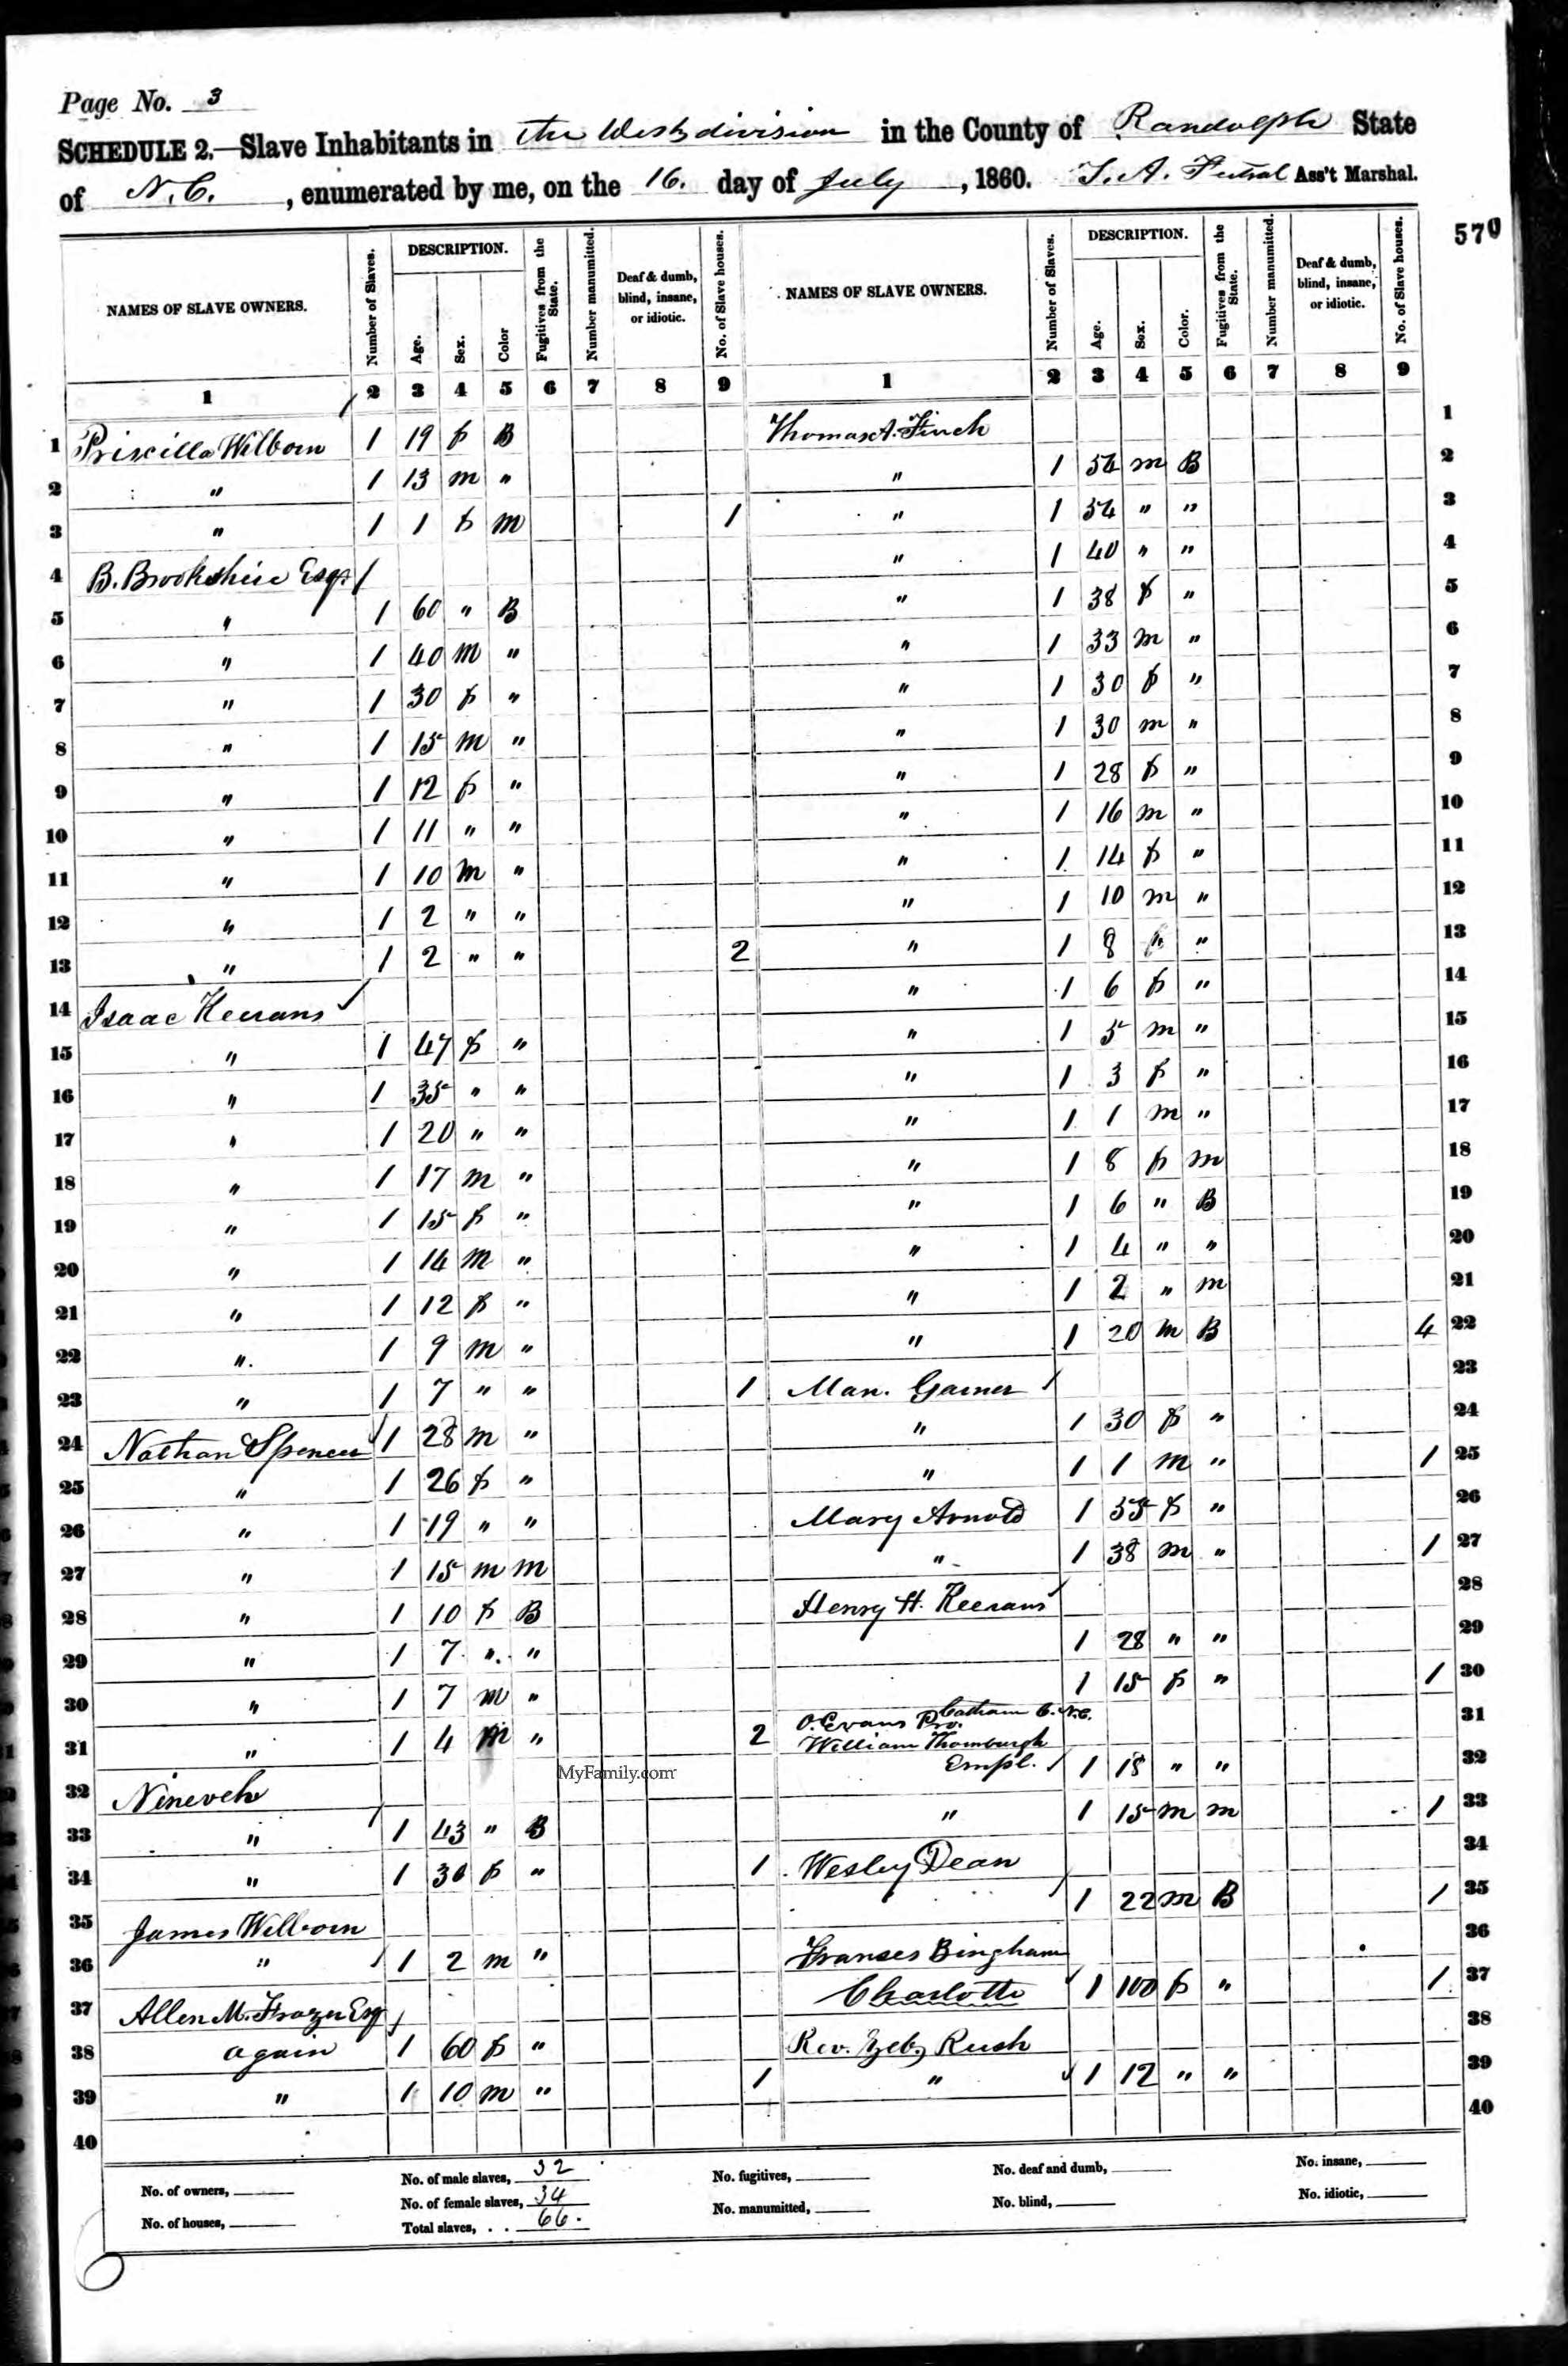 Page No. 3
SCHEDULE 2.—Slave Inhabitants in the West division in the County of Randolph State
of N.C., enumerated by me, on the 16. day of July, 1860. Ass't Marshal.
570
NAMES OF SLAVE OWNERS. Number of Slaves. DESCRIPTION. Age. Sex. Color Fugitives from the State. Number manumitted. Deaf & dumb, blind, insane, or idiotic. No. of Slave houses.
NAMES OF SLAVE OWNERS. Number of Slaves. DESCRIPTION. Age. Sex. Color. Fugitives from the State. Number manumitted. Deaf & dumb, blind, insane, or idiotic. No. of Slave houses.
1 2 3 4 5 6 7 8 9 1 2 3 4 5 6 7 8 9
1 Priscilla Wilborn 1 19 f B
2 " 1 13 m "
3 " 1 1 f m 1
4 B. Brookshire Esqr
5 " 1 60 " B
6 " 1 40 m "
7 " 1 30 f "
8 " 1 15 m "
9 " 1 12 f "
10 " 1 11 " "
11 " 1 10 m "
12 " 1 2 " "
13 " 1 2 " " 2
14 Isaac Keerans
15 " 1 47 f "
16 " 1 35 " "
17 " 1 20 " "
18 " 1 17 m "
19 " 1 15 f "
20 " 1 14 m "
21 " 1 12 f "
22 " 1 9 m "
23 " 1 7 " " 1
24 Nathan Spencer 1 28 m "
25 " 1 26 f "
26 " 1 19 " "
27 " 1 15 m m
28 " 1 10 f B
29 " 1 7 " "
30 " 1 7 m "
31 " 1 4 m " 2
32 Nineveh
33 " 1 43 " B
34 " 1 30 f " 1
35 James Wilborn
36 " 1 2 m "
37 Allen M. Frazer Esq
38 again 1 60 f "
39 " 1 10 m " 1
40
Thomas A. Finch 1
" 1 54 m B 2
" 1 54 " " 3
" 1 40 " " 4
" 1 38 f " 5
" 1 33 m " 6
" 1 30 f " 7
" 1 30 m " 8
" 1 28 f " 9
" 1 16 m " 10
" 1 14 f " 11
" 1 10 m " 12
" 1 8 " 13
" 1 6 f " 14
" 1 5 m " 15
" 1 3 f " 16
" 1 1 m " 17
" 1 8 f m 18
" 1 6 " B 19
" 1 4 " " 20
" 1 2 " m 21
" 1 20 m B 4 22
Man. Garner 23
" 1 30 f " 24
" 1 1 m " 1 25
Mary Arnold 1 55 f " 26
" 1 38 m " 1 27
Henry H. Keerans 28
1 28 " " 29
1 15 f " 1 30
O. Evans Pro. Catham C. N.C. 31
William Thornburgh
Empl. 1 18 " " 32
" 1 15 m m 1 33
Wesley Dean 34
1 22 m B 1 35
Franses Bingham 36
Charlotte 1 100 f " 1 37
Rev. Zeb Rush 38
" 1 12 " " 39
40
MyFamily.com
No. of owners, No. of houses,
No. of male slaves, 32
No. of female slaves, 34
Total slaves, . . 66.
No. fugitives, No. manumitted,
No. deaf and dumb, No. blind,
No. insane, No. idiotic,